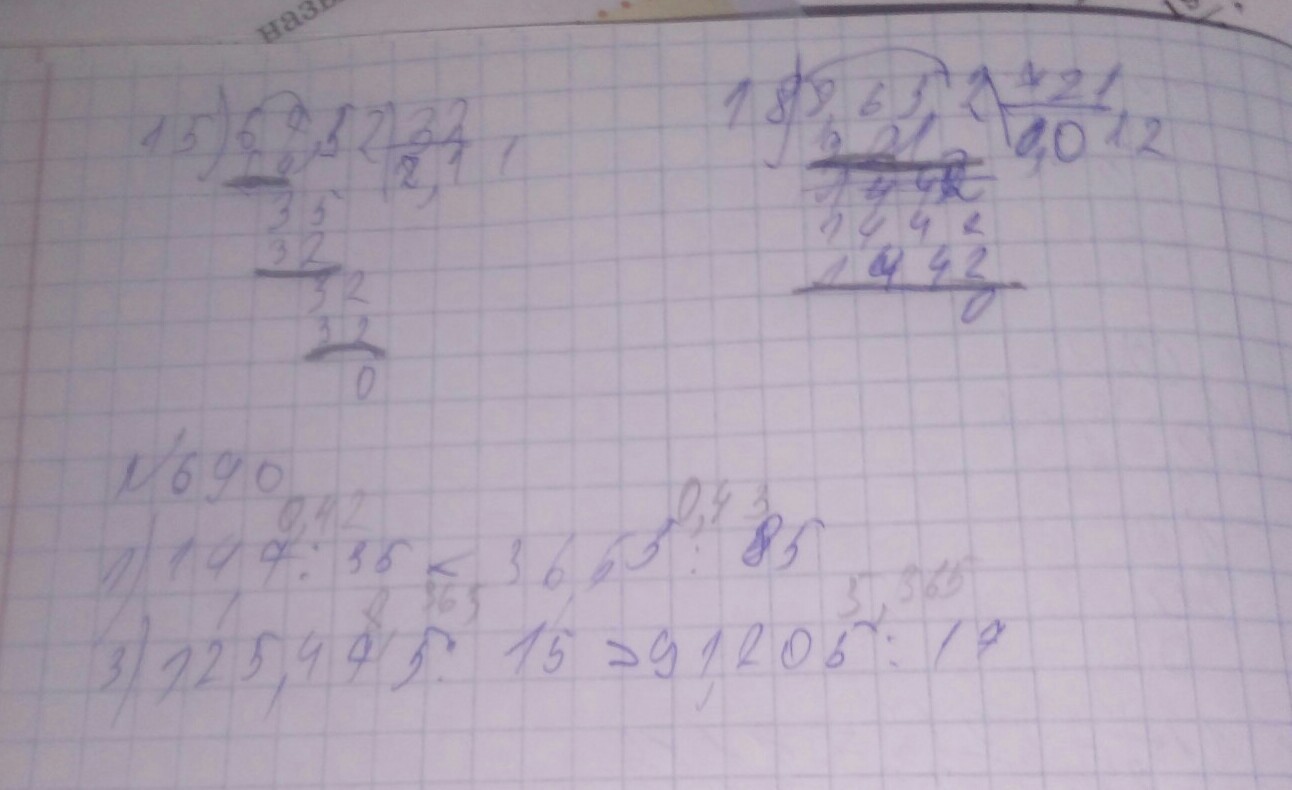 назы
15) 67,52 | 32
64 2,11
35
32
32
32
0
18) 8,652 | 721
721 0,012
1442
1442
1442
0
№690
0,42 0,43
1) 14,7 : 35 < 36,55 : 85
8,365 5,365
3) 125,475 : 15 > 91,205 : 17